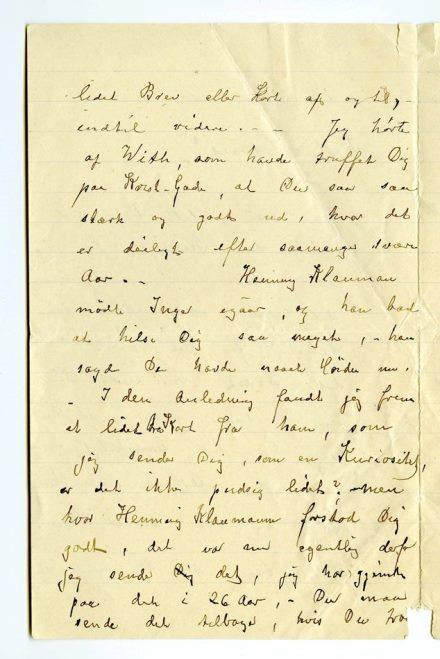 lidet Brev eller Kort af og til,
indtil videre. - - Jeg hørte
af With, som havde truffet Dig
paa Kort-Gade, at Du saa saa
stærk og godt ud, hvor det
er deiligt efter saamange svære
Aar. - - Henning Klauman
mødte Inger igaar, og han bad
at hilse Dig saa meget, - han
sagd Du havde naaet Høiden nu.
- I den Anledning fandt jeg frem
et lidet Kort fra ham, som
jeg sender Dig, som en Kuriositet,
er det ikke pudsig lidet? - men
hvor Henning Klaumann forstod Dig
godt, det var nu egentlig derfor
jeg sende Dig det, jeg har gjemt
paa det i 26 Aar, - Du maa
sende det tilbage, hvis Du